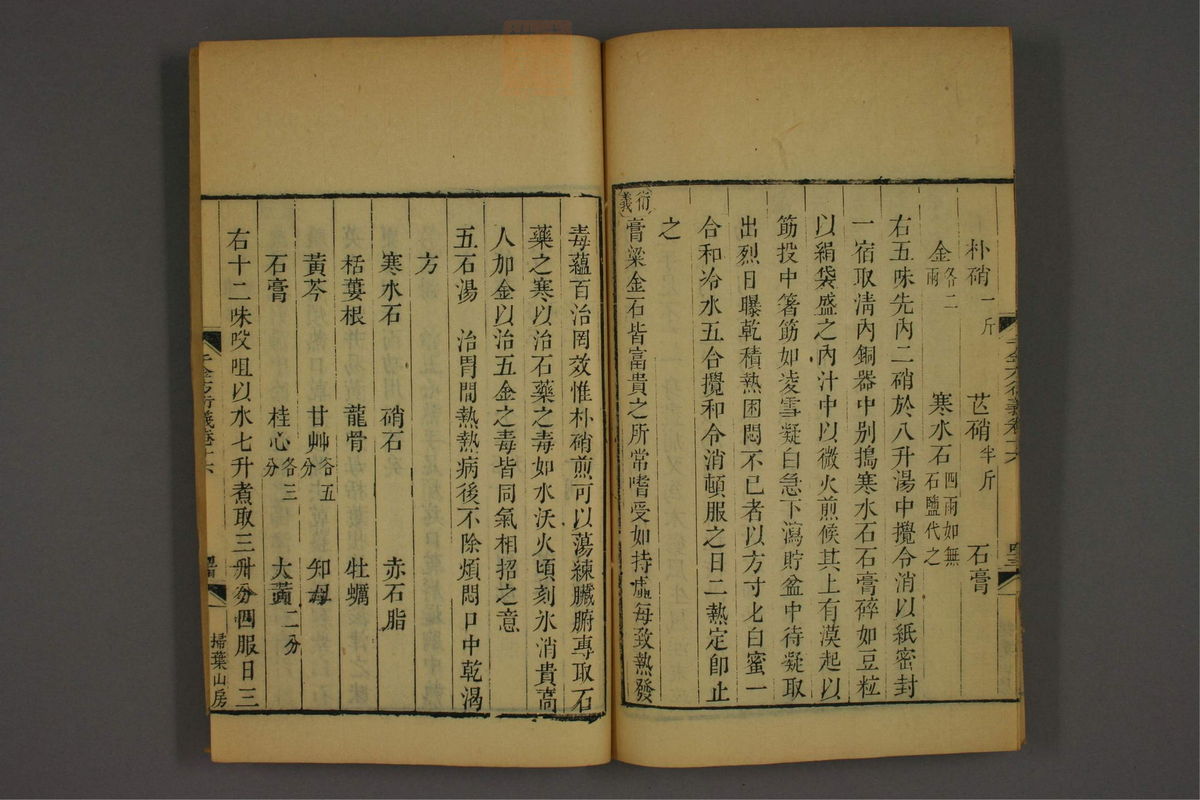 朴硝一斤 芒硝半斤 石膏
金各二兩 寒水石四兩如無石鹽代之
右五味先內二硝於八升湯中攪令消以紙密封
一宿取淸內銅器中别搗寒水石石膏碎如豆粒
以絹袋盛之內汁中以微火煎候其上有漠起以
筯投中箸筯如凌雪凝白急下瀉貯盆中待凝取
出烈日曝乾積熱困悶不已者以方寸匕白蜜一
合和冷水五合攪和令消頓服之日二熱定即止
之
衍義 膏粱金石皆富貴之所常嗜受如持虛每致熱發
千金方衍義卷十六
毒蘊百治罔效惟朴硝煎可以蕩練臟腑專取石
藥之寒以治石藥之毒如水沃火頃刻氷消貴高
人加金以治五金之毒皆同氣相招之意
五石湯 治胃間熱熱病後不除煩悶口中乾渴
方
寒水石 硝石 赤石脂
栝蔞根 龍骨 牡蠣
黃芩 甘艸各五分 知母
石膏 桂心各三分 大黃二分
右十二味㕮咀以水七升煮取三升分四服日三
千金方衍義卷十六
掃葉山房